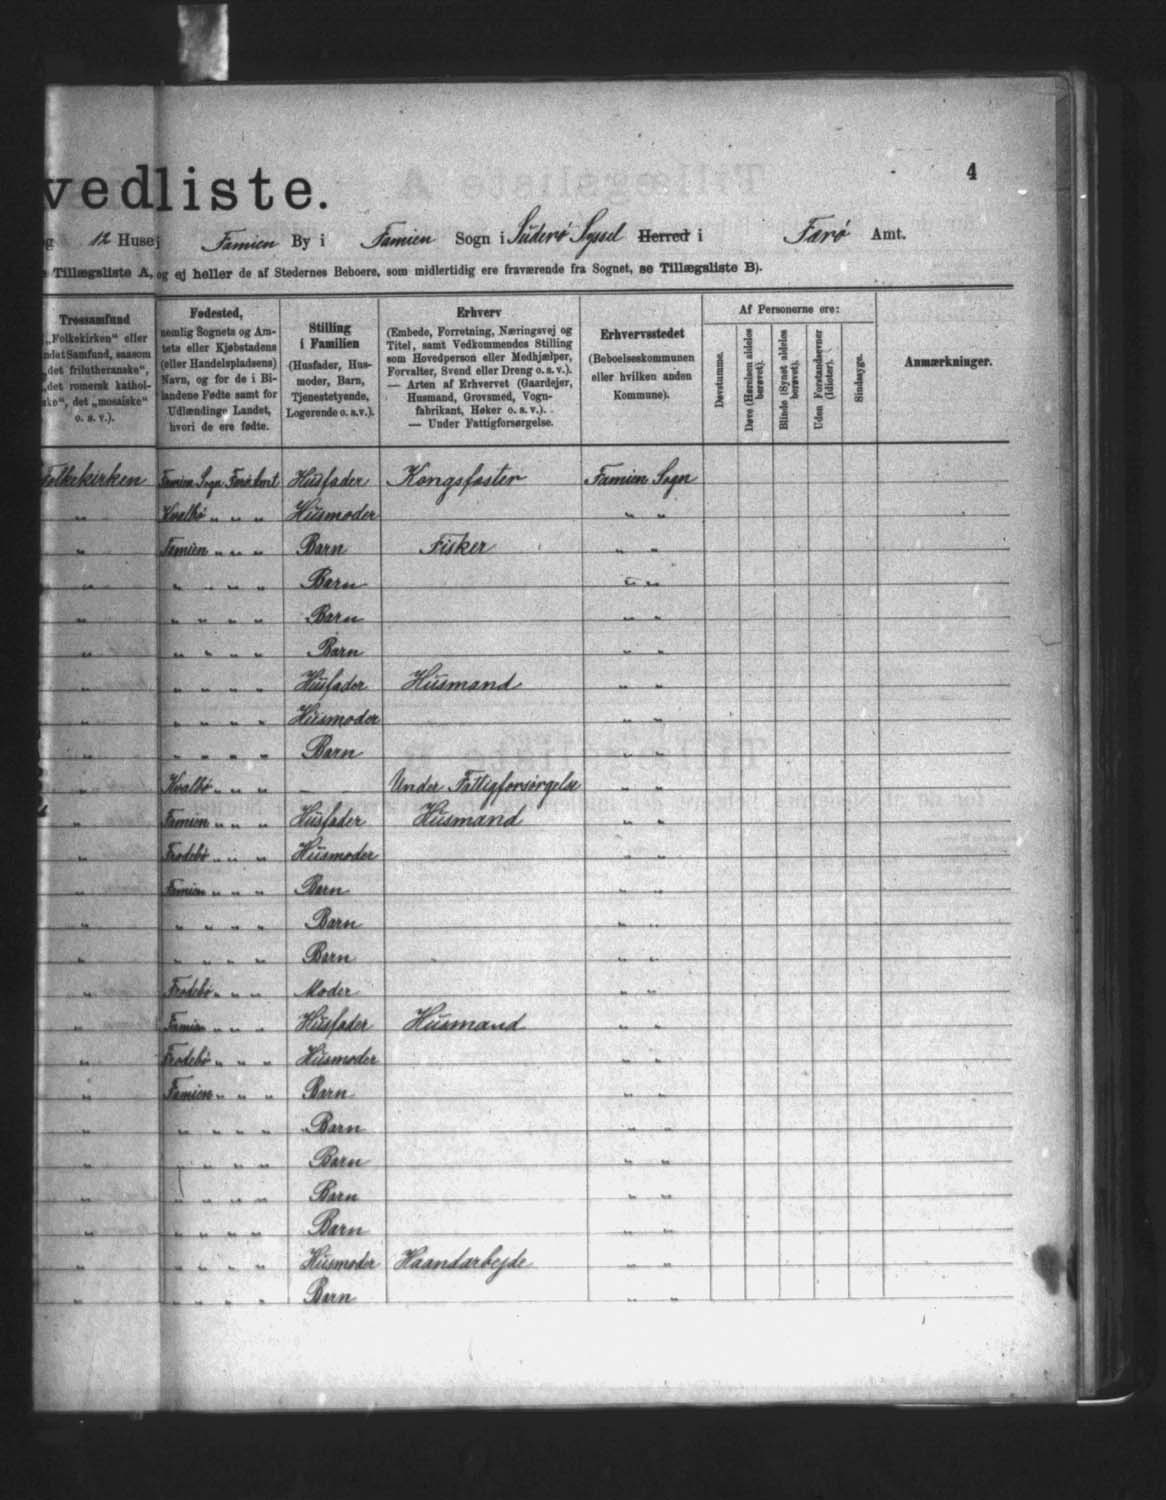 vedliste.
4
og 12 Huse j Famien By i Famien Sogn i Suderø Syssel Herred i Færø Amt.
Tillægsliste A, og ej heller de af Stedernes Beboere, som midlertidig ere fraværende fra Sognet, se Tillægsliste B).
Trossamfund
„Folkekirken“ eller
andet Samfund, saasom
„det frilutheranske“,
„det romersk kathol-
ske“, det „mosaiske“
o. s. v.).
Fødested,
nemlig Sognets og Am-
tets eller Kjøbstadens
(eller Handelspladsens)
Navn, og for de i Bi-
landene Fødte samt for
Udlændinge Landet,
hvori de ere fødte.
Stilling
i Familien
(Husfader, Hus-
moder, Barn,
Tjenestetyende,
Logerende o. s. v.).
Erhverv
(Embede, Forretning, Næringsvej og
Titel, samt Vedkommendes Stilling
som Hovedperson eller Medhjælper,
Forvalter, Svend eller Dreng o. s. v.).
— Arten af Erhvervet (Gaardejer,
Husmand, Grovsmed, Vogn-
fabrikant, Høker o. s. v.).
— Under Fattigforsørgelse.
Erhvervsstedet
(Beboelseskommunen
eller hvilken anden
Kommune).
Af Personerne ere:
Døvstumme.
Døve (Hørelsen aldeles
berøvet).
Blinde (Synet aldeles
berøvet).
Uden Forstandsevner
(Idioter).
Sindssyge.
Anmærkninger.
Folkekirken Famien Sogn Færø Amt Husfader Kongsfæster Famien Sogn
„ Kvalbø „ „ „ Husmoder „ „
„ Famien „ „ „ Barn Fisker „ „
„ „ „ „ „ Barn „ „
„ „ „ „ „ Barn „ „
„ „ „ „ „ Barn „ „
„ „ „ „ „ Husfader Husmand „ „
„ „ „ „ „ Husmoder „ „
„ „ „ „ „ Barn „ „
„ Kvalbø „ „ „ — Under Fattigforsørgelse „ „
„ Famien „ „ „ Husfader Husmand „ „
„ Frodebø „ „ „ Husmoder „ „
„ Famien „ „ „ Barn „ „
„ „ „ „ „ Barn „ „
„ „ „ „ „ Barn „ „
„ Frodebø „ „ „ Moder „ „
„ Famien „ „ „ Husfader Husmand „ „
„ Frodebø „ „ „ Husmoder „ „
„ Famien „ „ „ Barn „ „
„ „ „ „ „ Barn „ „
„ „ „ „ „ Barn „ „
„ „ „ „ „ Barn „ „
„ „ „ „ „ Barn „ „
„ „ „ „ „ Husmoder Haandarbejde „ „
„ „ „ „ „ Barn „ „